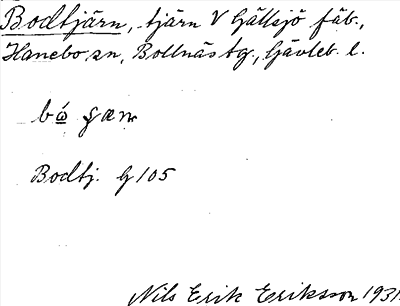 Bodtjärn, tjärn V Gällsjö fäb.,
Hanebo sn, Bollnäs tg., Gävleb. l.
Bodtj. G 105
Nils Erik Eriksson 1931